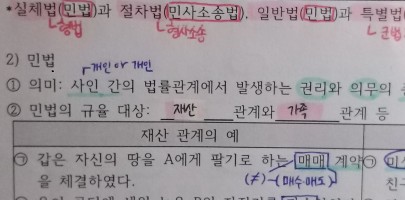 •실체법(민법)과 절차법(민사소송법). 일반법(민법)과 특별법
↳형법 ↳형사소송 ↳군법
2) 민법
개인 and 개인
① 의미: 사인 간의 법률관계에서 발생하는 권리와 의무의
② 민법의 규율 대상: 재산 관계와 가족 관계 등
재산 관계의 예
㉠ 갑은 자신의 땅을 A에게 팔기로 하는 매매 계약 ㉠
을 체결하였다. (≠)→(매수·매도) 친구